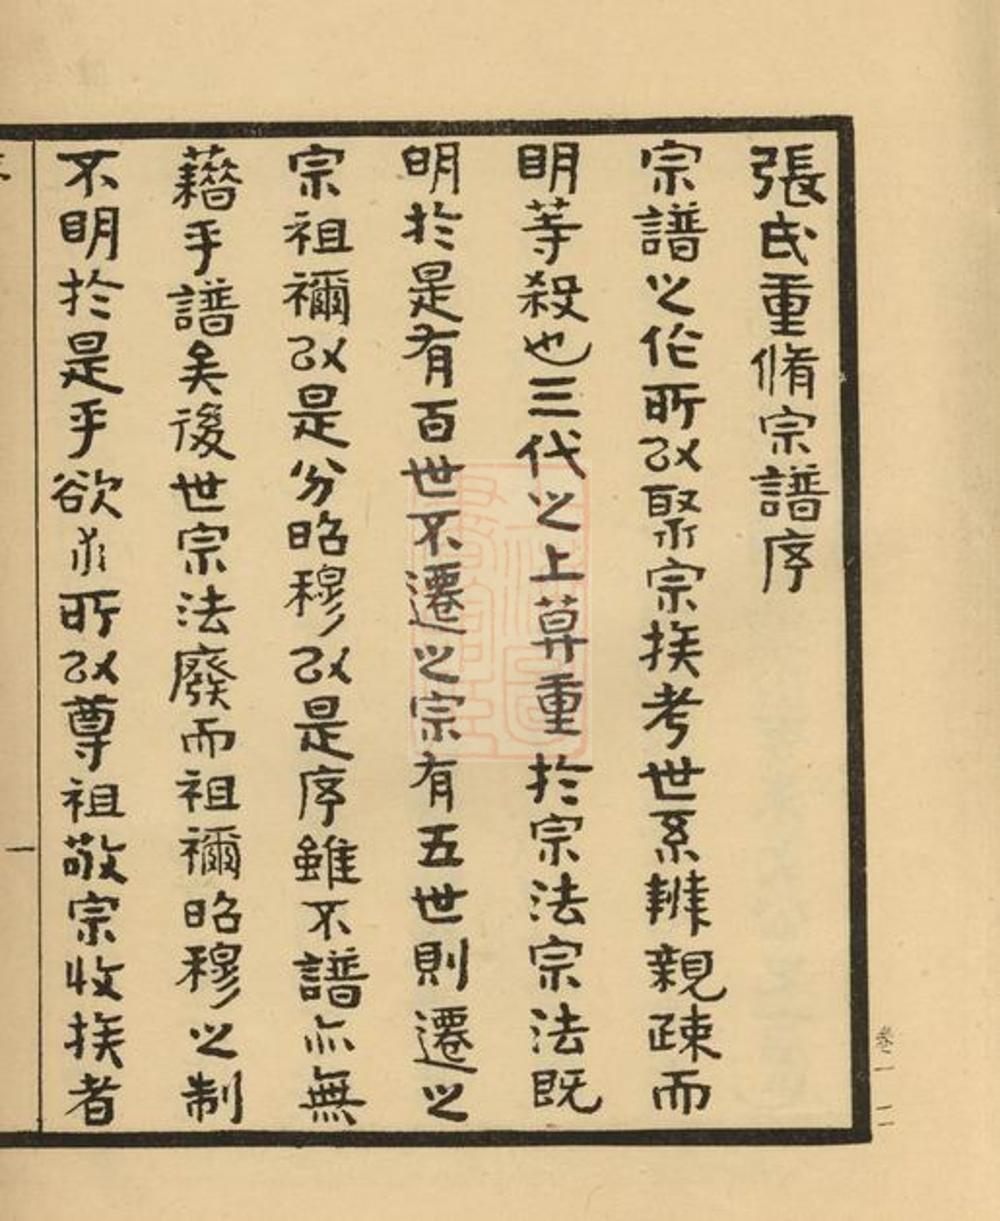 張氏重脩宗譜序
宗譜之作所以聚宗族考世系辨親疎而
明等殺也三代之上莫重於宗法宗法既
明於是有百世不遷之宗有五世則遷之
宗祖禰以是分昭穆以是序雖不譜亦無
藉乎譜矣後世宗法廢而祖禰昭穆之制
不明於是乎欲求所以尊祖敬宗收族者
一
卷一 二